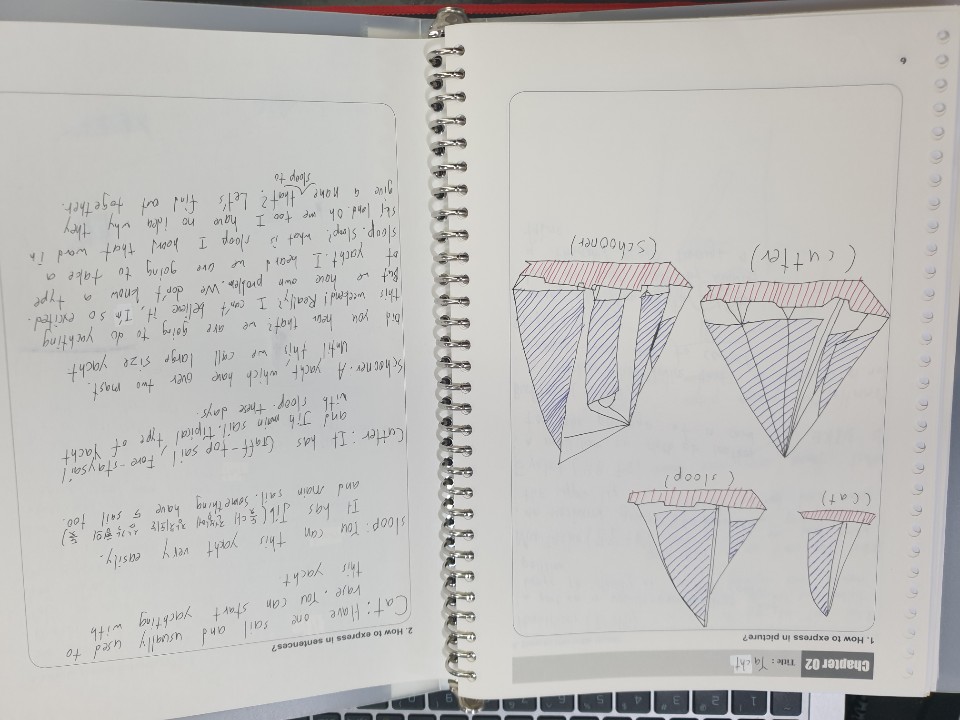 Chapter 02
Title : Yacht
1. How to express in picture?
(cat)
(sloop)
(cutter)
(schooner)
6
2. How to express in sentences?
Cat: Have one sail and usually used to
rase. You can start yachting with
this yacht
sloop: You can this yacht very easily.
It has Jib(
and main sail. something have 5 sail too.
Cutter: It has Gaff-top sail, Fore-staysail
and Jib main sail. Tipical type of Yacht
with sloop. these days.
Schooner. A yacht which have over two mast.
Until this, we call large size yacht
Did you hear that? we are going to do yachting
this weekend! Really? I can't believe it, I'm so excited.
But we have own problem. We don't know a type
of yacht. I heard we are going to take a
sloop. Sloop? what is sloop I heard that word in
land. Oh we too I have no idea why they
give a name that? Let's find out together.
sloop to